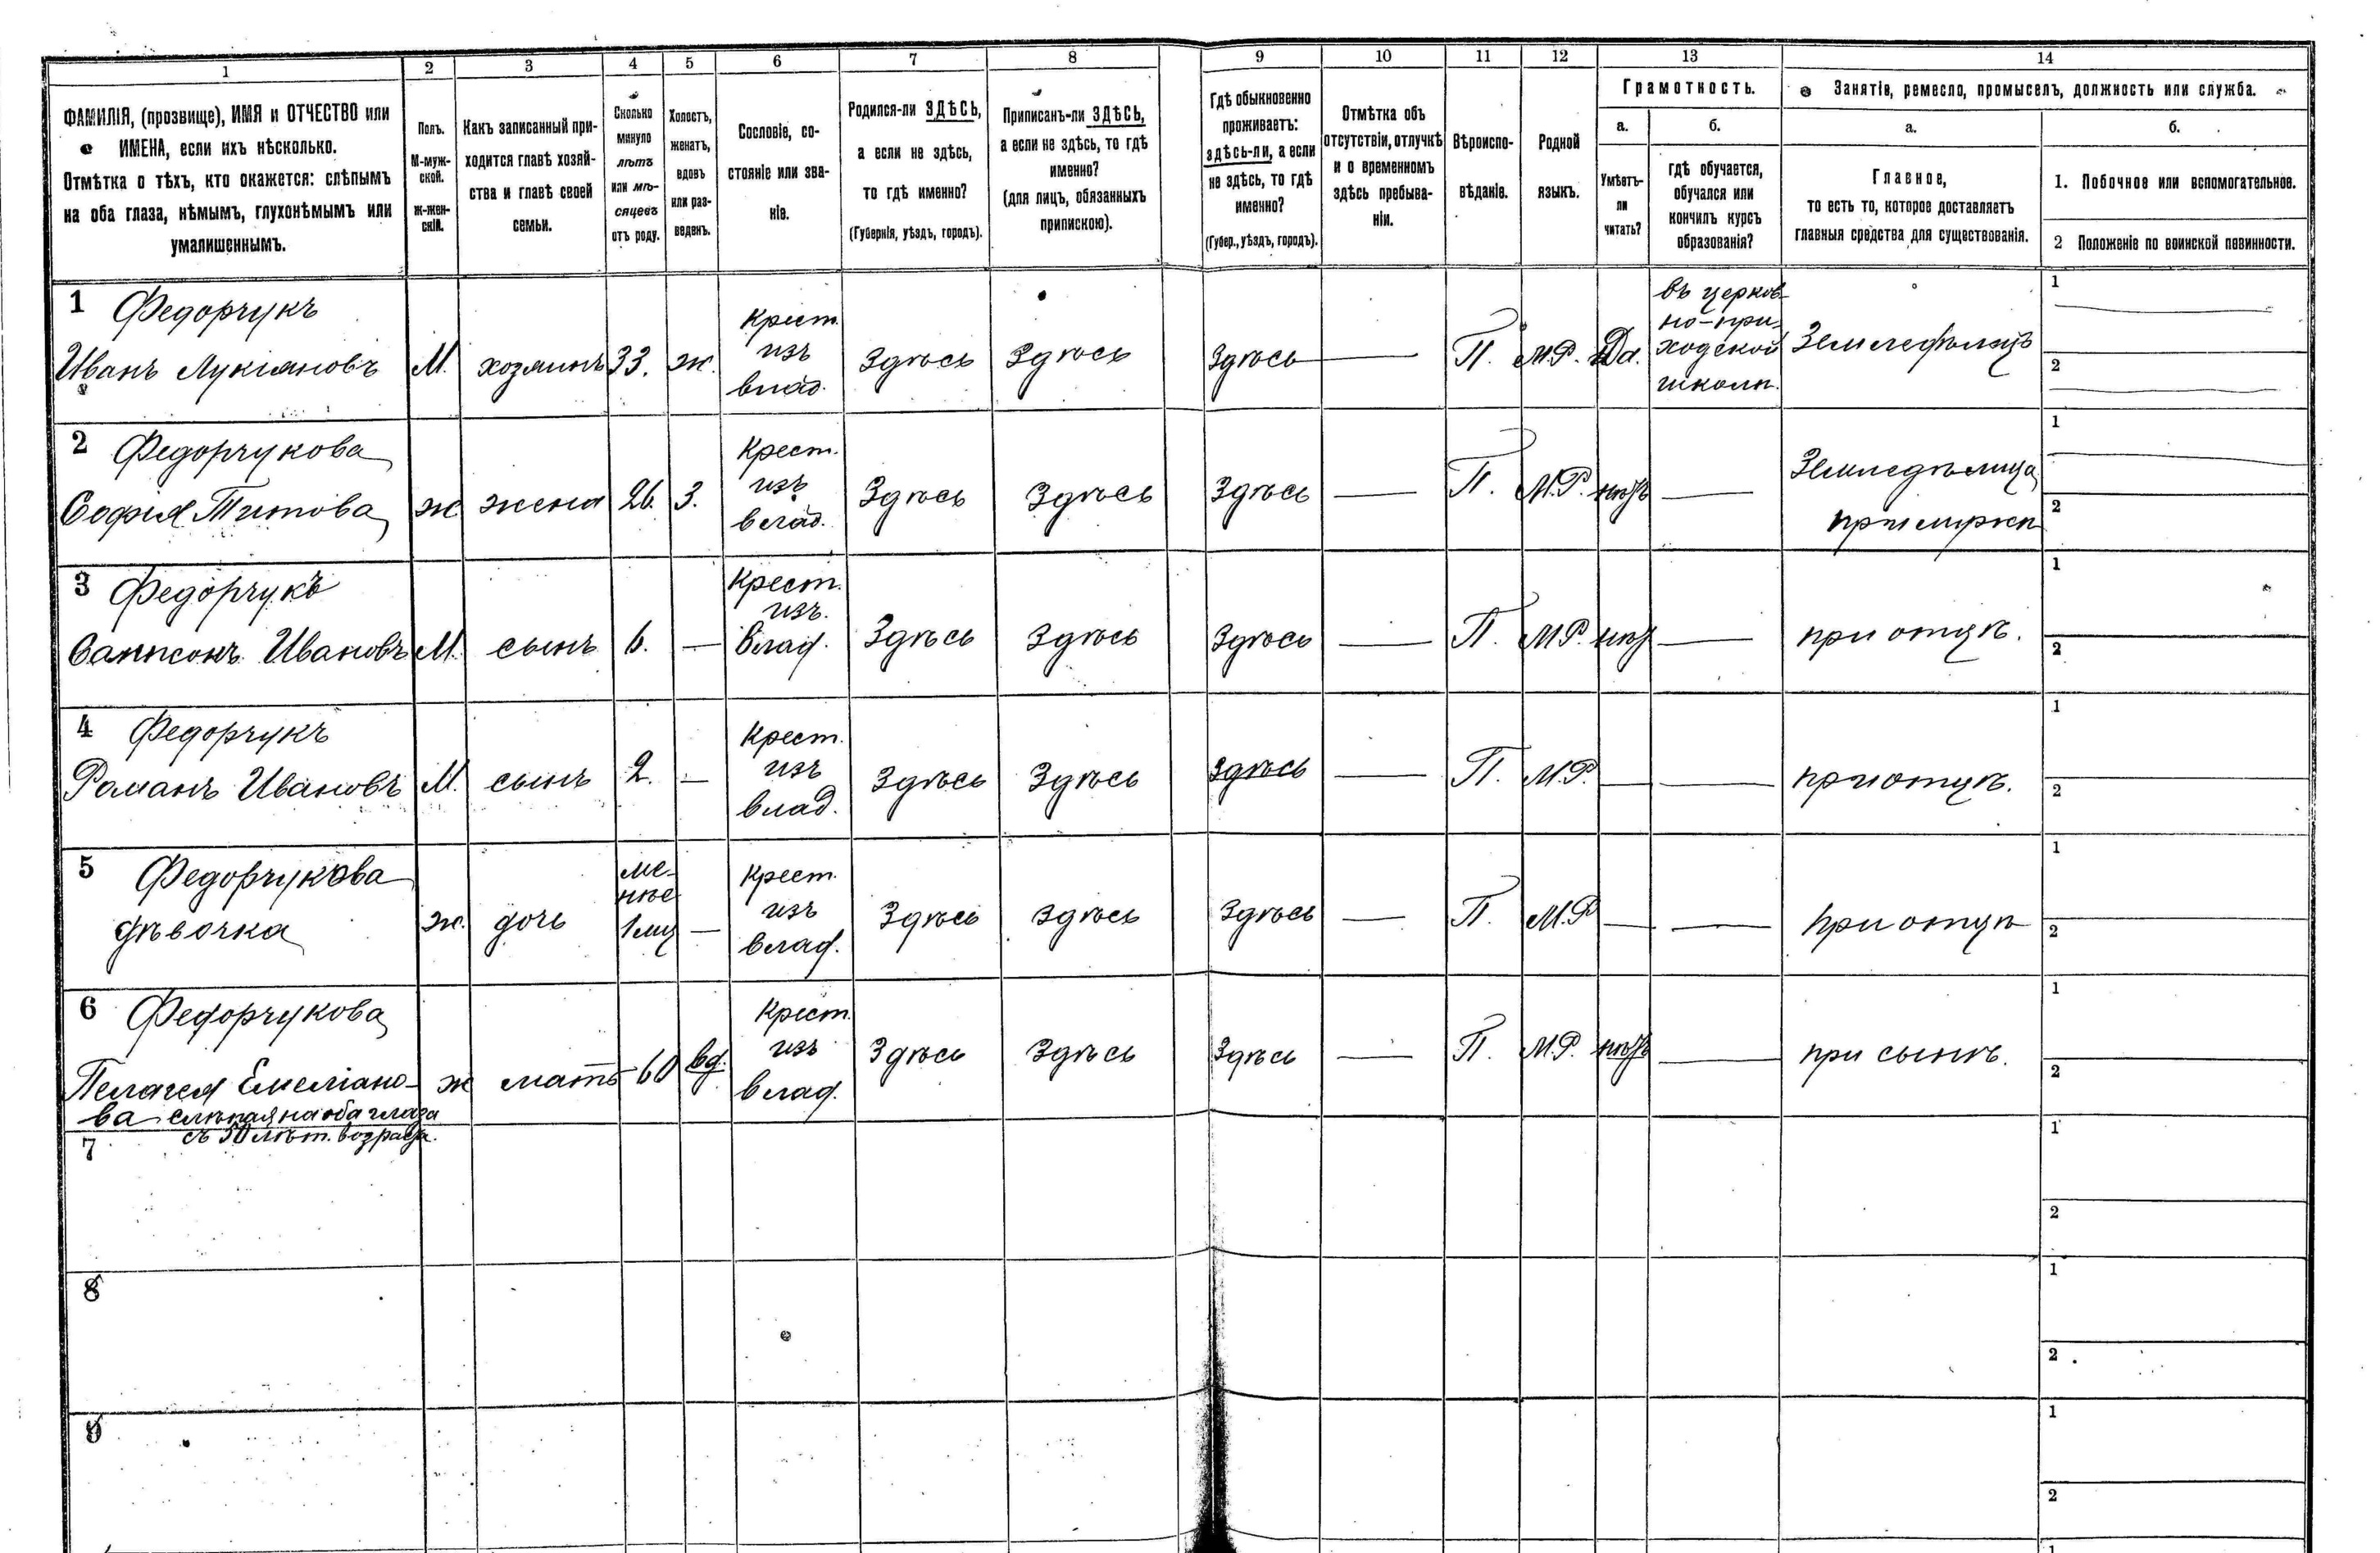 1 2 3 4 5 6 7 8 9 10 11 12 13 14
ФАМИЛІЯ, (прозвище), ИМЯ и ОТЧЕСТВО или
ИМЕНА, если ихъ нѣсколько.
Отмѣтка о тѣхъ, кто окажется: слѣпымъ
на оба глаза, нѣмымъ, глухонѣмымъ или
умалишеннымъ.
Полъ.
М-муж-
ской.
Ж-жен-
скій.
Какъ записанный при-
ходится главѣ хозяй-
ства и главѣ своей
семьи.
Сколько
минуло
лѣтъ
или мѣ-
сяцевъ
отъ роду.
Холостъ,
женатъ,
вдовъ
или раз-
веденъ.
Сословіе, со-
стояніе или зва-
ніе.
Родился-ли ЗДѢСЬ,
а если не здѣсь,
то гдѣ именно?
(Губернія, уѣздъ, городъ).
Приписанъ-ли ЗДѢСЬ,
а если не здѣсь, то гдѣ
именно?
(для лицъ, обязанныхъ
припискою).
Гдѣ обыкновенно
проживаетъ:
здѣсь-ли, а если
не здѣсь, то гдѣ
именно?
(Губер., уѣздъ, городъ).
Отмѣтка объ
отсутствіи, отлучкѣ
и о временномъ
здѣсь пребыва-
ніи.
Вѣроиспо-
вѣданіе.
Родной
языкъ.
Грамотность.
а.
Умѣетъ-
ли
читать?
б.
гдѣ обучается,
обучался или
кончилъ курсъ
образованія?
Занятіе, ремесло, промыселъ, должность или служба.
а.
Главное,
то есть то, которое доставляетъ
главныя средства для существованія.
б.
1. Побочное или вспомогательное.
2 Положеніе по воинской повинности.
1 Федорчукъ
Иванъ Лукіяновъ
М.
хозяинъ
33.
ж.
Крест.
изъ
влад.
Здѣсь
Здѣсь
Здѣсь —
П.
М.Р.
Да.
въ церков-
но-при-
ходской
школѣ.
Земледѣлецъ
1
2
2 Федорчукова
Софія Титова
ж
жена
26.
З.
Крест.
изъ
влад.
Здѣсь
Здѣсь
Здѣсь
—
П.
М.Р.
нѣтъ
—
Земледѣлица
при мужѣ
1
2
3 Федорчукъ
Сампсонъ Ивановъ
М.
сынъ
6.
—
Крест.
изъ.
влад.
Здѣсь
Здѣсь
Здѣсь
—
П.
М.Р.
нѣтъ
—
при отцѣ.
1
2
4 Федорчукъ
Романъ Ивановъ
М.
сынъ
2.
—
Крест.
изъ
влад.
Здѣсь
Здѣсь
Здѣсь
—
П.
М.Р.
—
—
при отцѣ.
1
2
5 Федорчукова
дѣвочка
ж.
дочь
ме-
нѣе
1 мц
—
Крест.
изъ
влад.
Здѣсь
Здѣсь
Здѣсь
—
П.
М.Р
—
—
при отцѣ
1
2
6 Федорчукова
Пелагея Емеліано-
ва слѣпая на оба глаза
съ 50 лѣт. возраста.
ж
мать
60
вд.
Крест.
изъ
влад.
Здѣсь
Здѣсь
Здѣсь
—
П.
М.Р.
нѣтъ
—
при сынѣ.
1
2
7
1
2
8
1
2
9
1
2
1